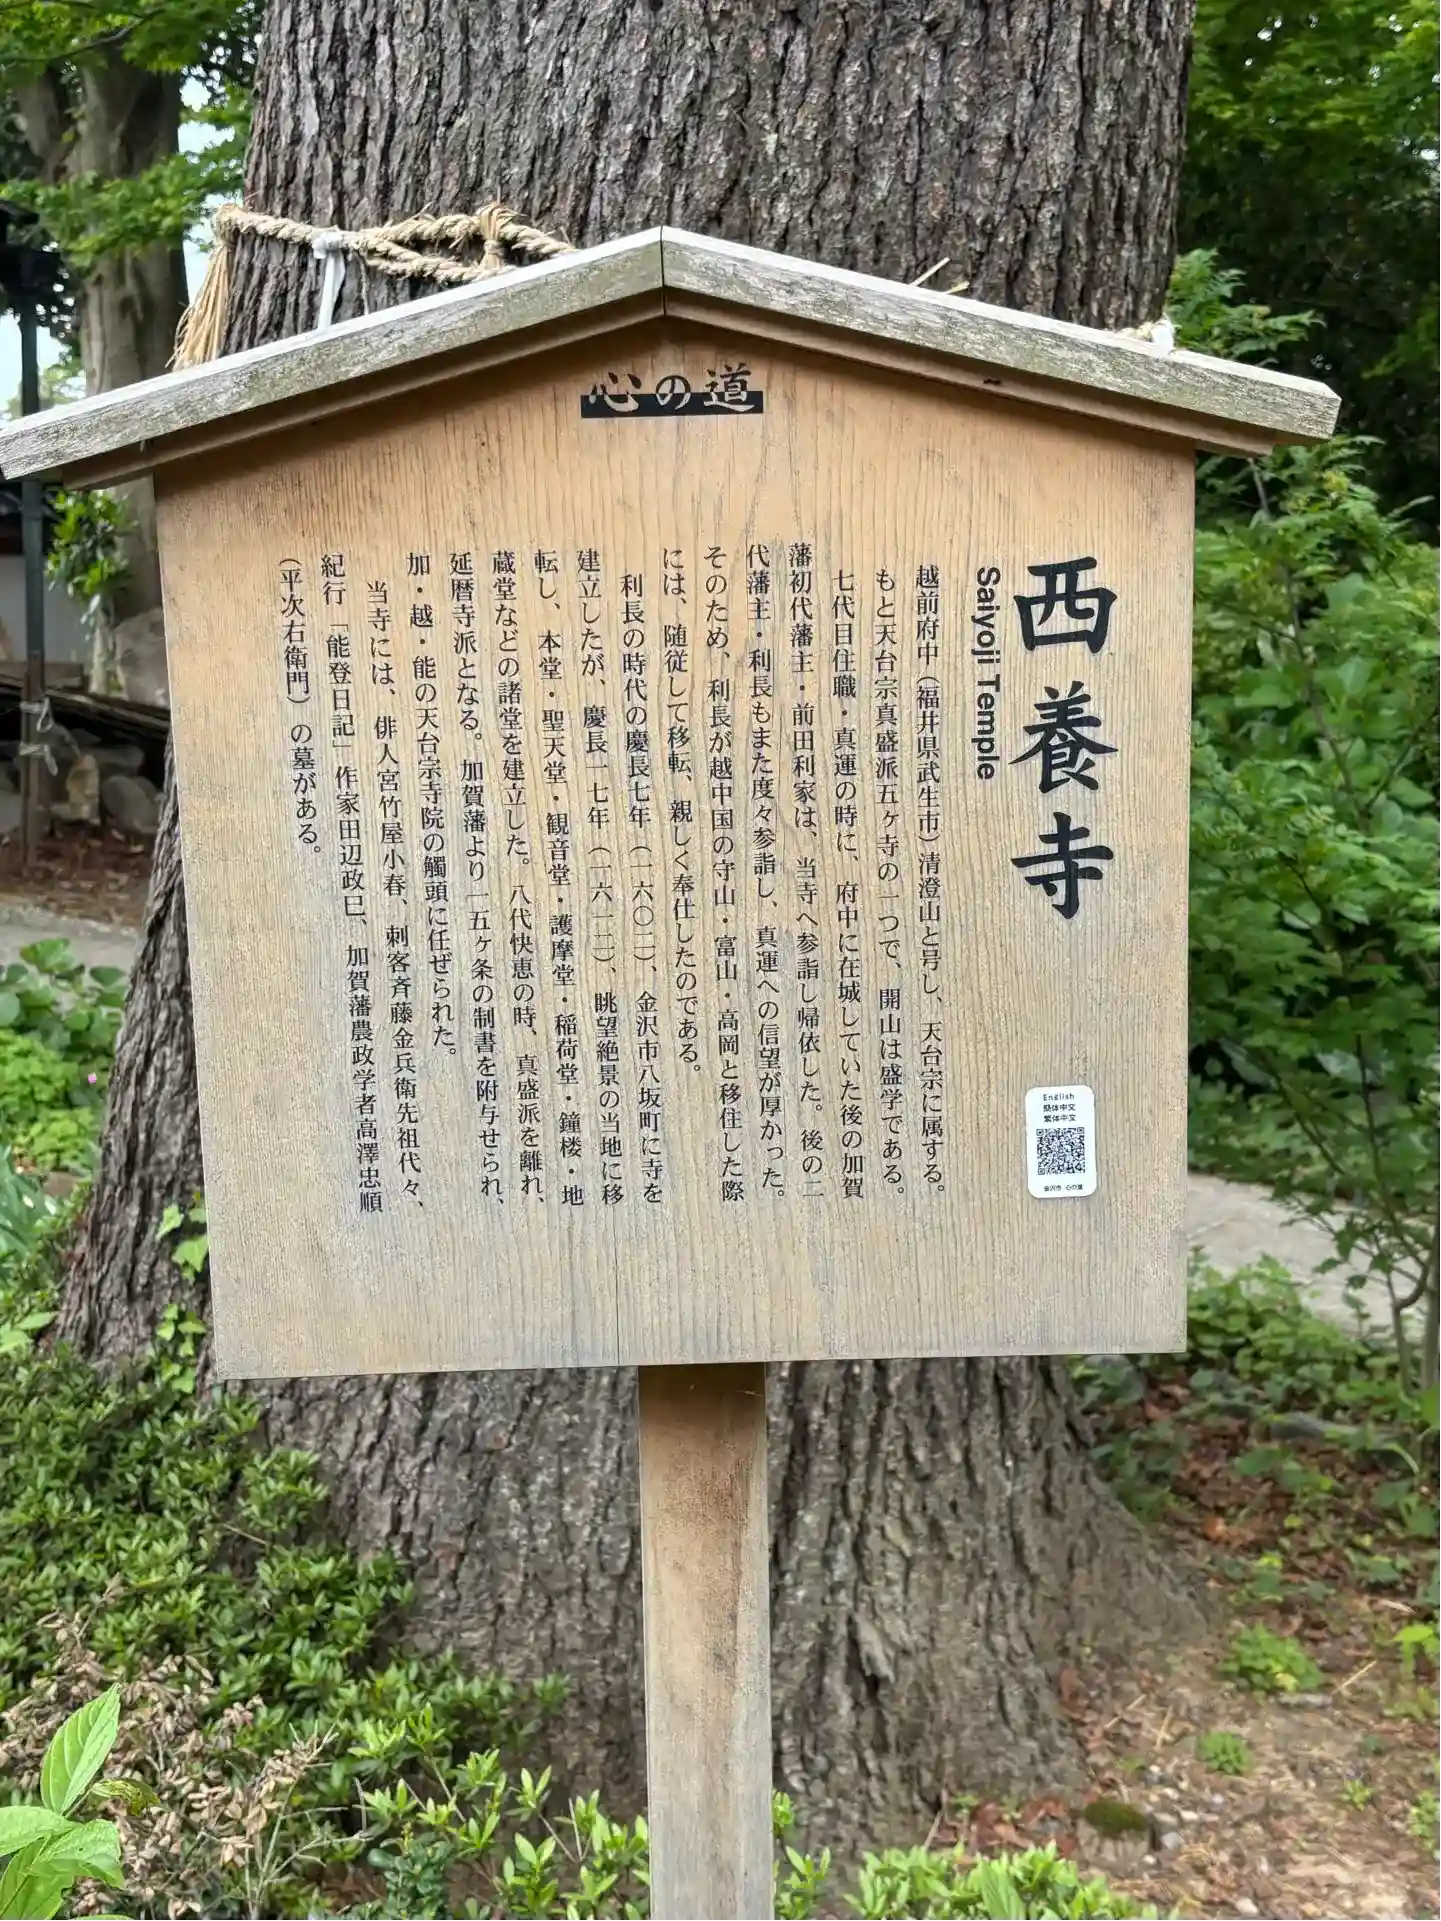 心の道
西養寺
Saiyoji Temple
越前府中（福井県武生市）清澄山と号し、天台宗に属する。
もと天台宗真盛派五ヶ寺の一つで、開山は盛学である。
七代目住職・真運の時に、府中に在城していた後の加賀
藩初代藩主・前田利家は、当寺へ参詣し帰依した。後の二
代藩主・利長もまた度々参詣し、真運への信望が厚かった。
そのため、利長が越中国の守山・富山・高岡と移住した際
には、随従して移転、親しく奉仕したのである。
利長の時代の慶長七年（一六〇二）、金沢市八坂町に寺を
建立したが、慶長一七年（一六一二）、眺望絶景の当地に移
転し、本堂・聖天堂・観音堂・護摩堂・稲荷堂・鐘楼・地
蔵堂などの諸堂を建立した。八代快恵の時、真盛派を離れ、
延暦寺派となる。加賀藩より一五ヶ条の制書を附与せられ、
加・越・能の天台宗寺院の觸頭に任ぜられた。
当寺には、俳人宮竹屋小春、刺客斉藤金兵衛先祖代々、
紀行「能登日記」作家田辺政巳、加賀藩農政学者高澤忠順
（平次右衛門）の墓がある。
English
簡体中文
繁体中文
金沢市 心の道